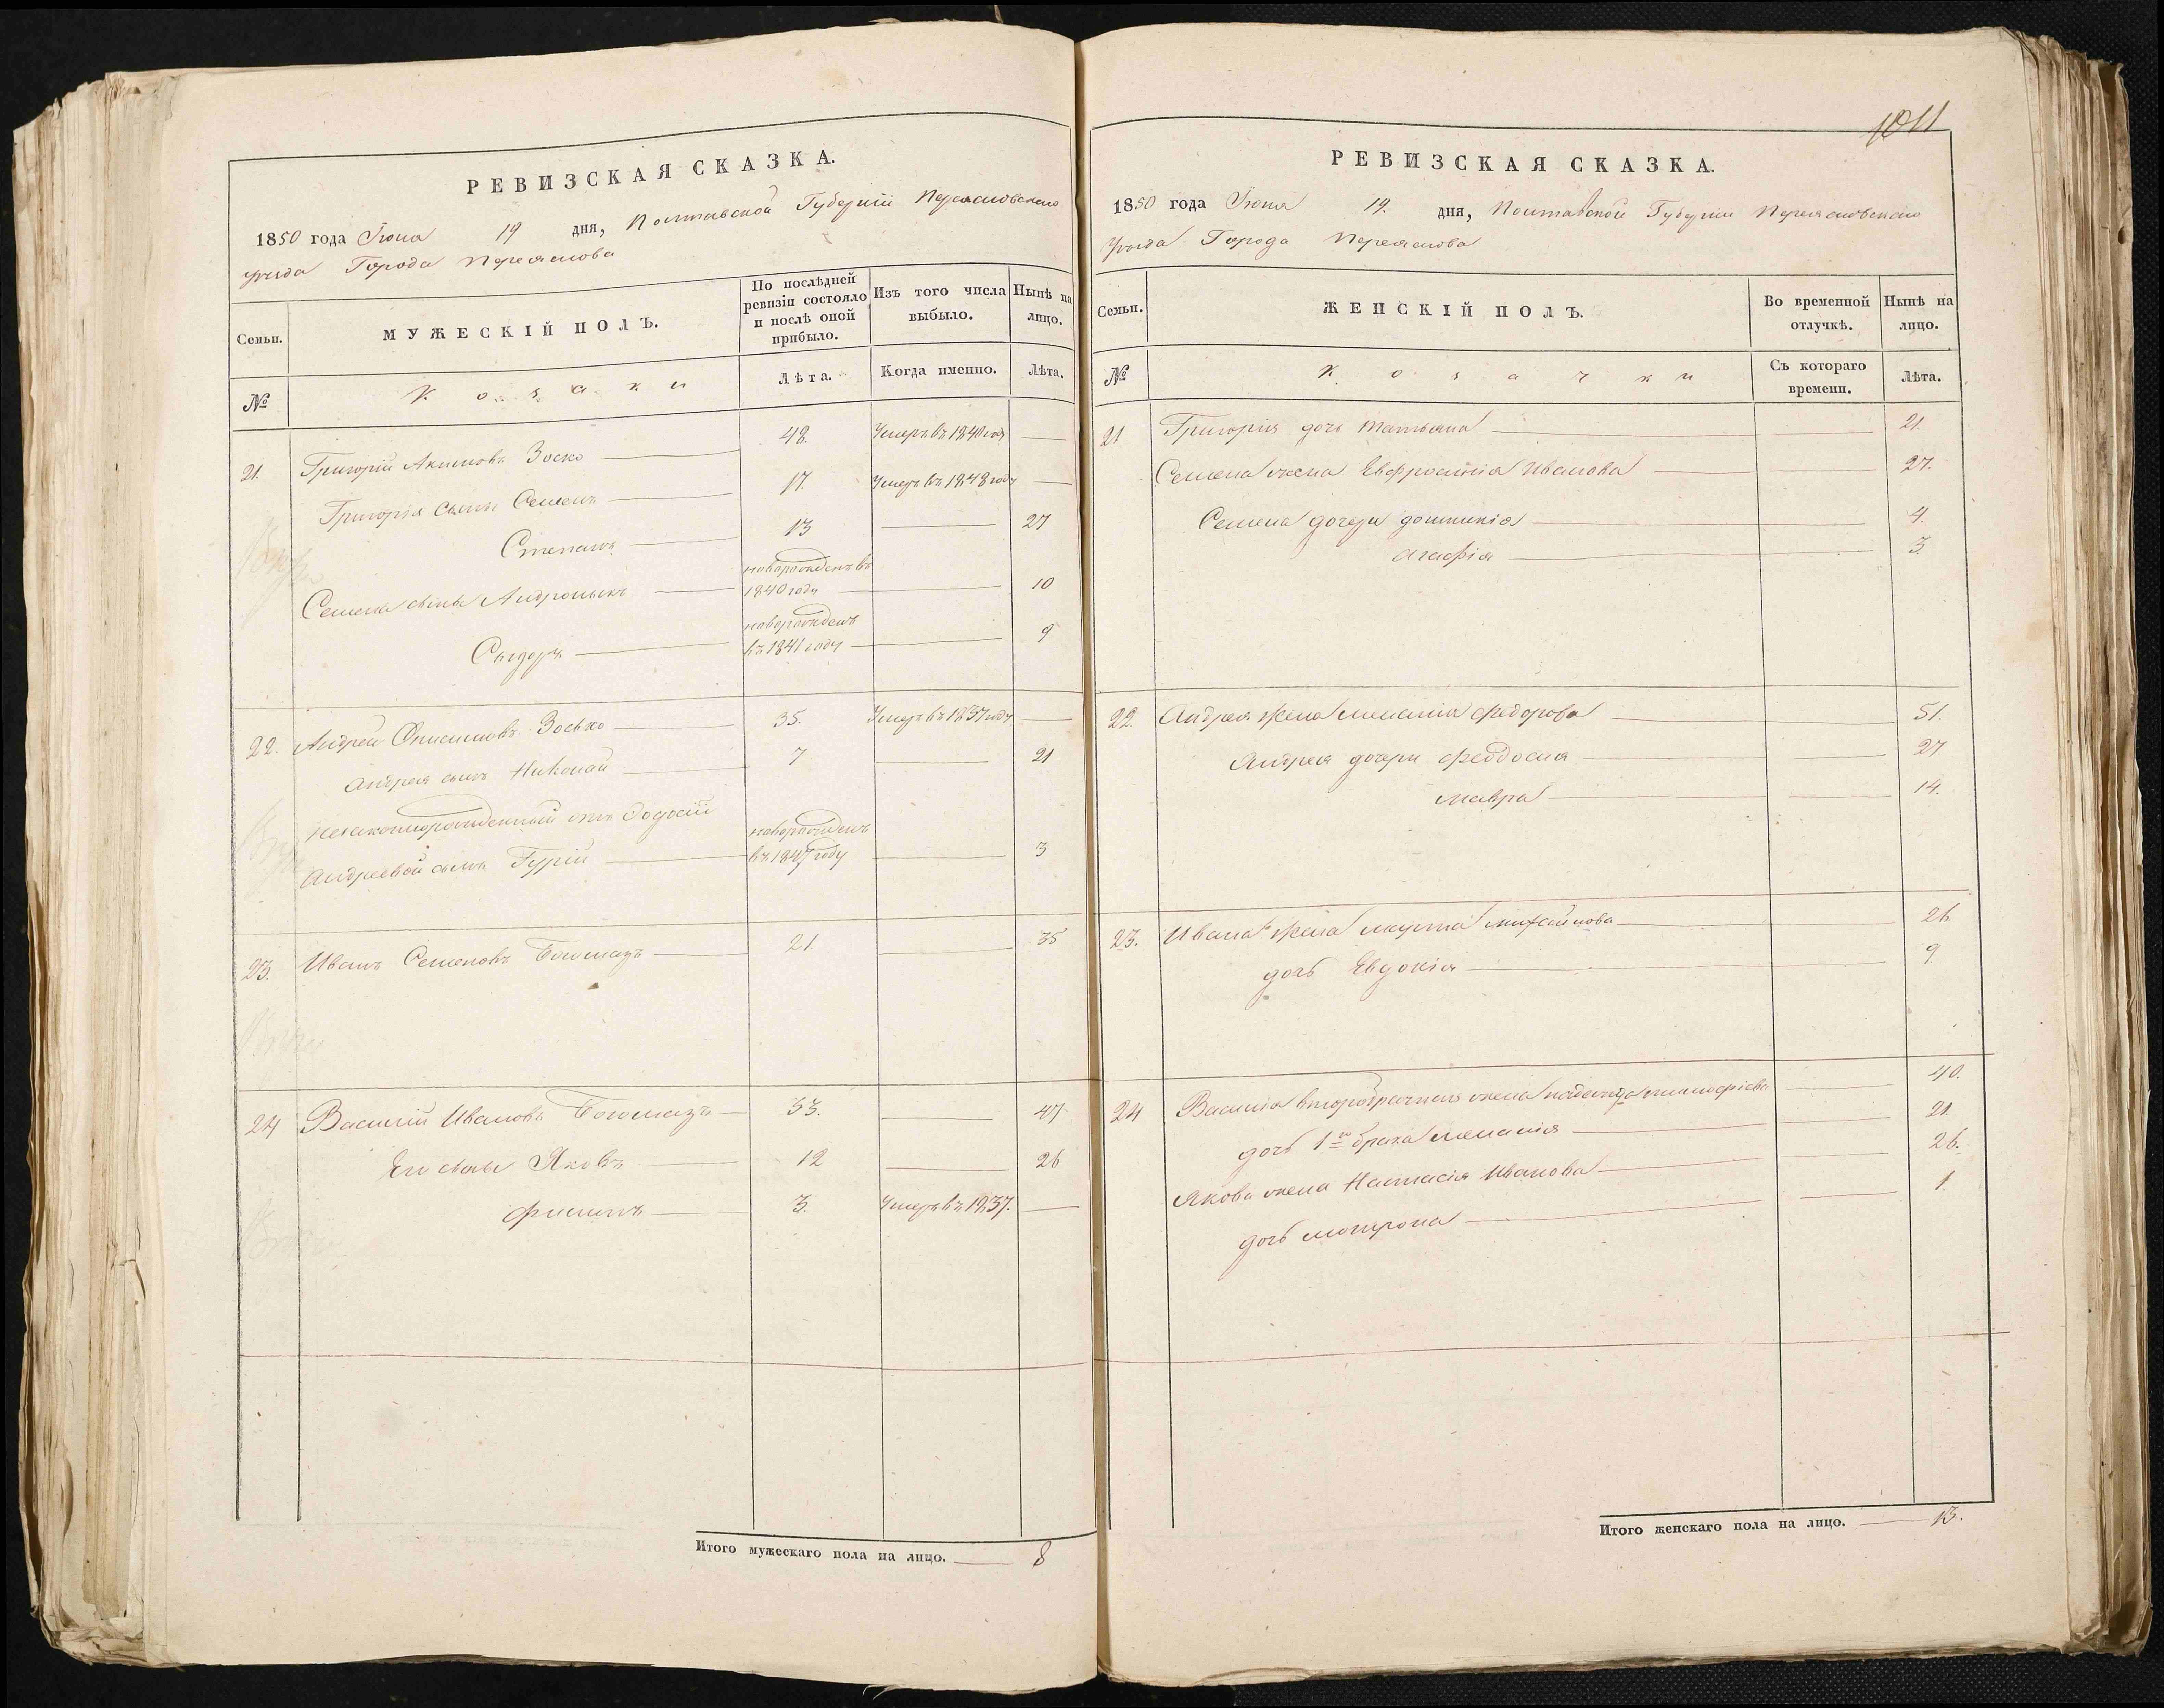 РЕВИЗСКАЯ СКАЗКА.
1850 года Іюня 19 дня, Полтавской Губерніи Переясловского
Уезда Города Переяслова
Семьи.
МУЖЕСКІЙ ПОЛЪ.
По послѣдней ревизіи состояло и послѣ оной прибыло.
Изъ того числа выбыло.
Нынѣ на лицо.
№
Козаки
Лѣта.
Когда именно.
Лѣта.
21. Григорій Акимовъ Зоско 48. Умеръ въ 1840 году
Григорія сыны Семенъ 17. Умеръ въ 1848 году
Степанъ 13 27
Семена сыны Андроникъ новорожденъ въ 1840 году 10
Сидоръ новорожденъ въ 1841 году 9
22. Андрей Онисимовъ Зосько 35. Умеръ въ 1837 году
Андрея сынъ Николай 7 21
Незаконнорожденный отъ
Андреевой сынъ Гурій новорожденъ въ 1847 году 3
23. Иванъ Семеновъ Богомазъ 21. 35
24 Василій Ивановъ Богомазъ 33. 47
Его сыны Яковъ 12 26
Филипъ 3. Умеръ въ 1837.
Итого мужескаго пола на лицо. 8
1011
РЕВИЗСКАЯ СКАЗКА.
1850 года Іюня 19. дня, Полтавской Губерніи Переясловского
Уезда Города Переяслова
Семьи.
ЖЕНСКІЙ ПОЛЪ.
Во временной отлучкѣ.
Нынѣ на лицо.
№
Козачки
Съ котораго времени.
Лѣта.
21 Григорія дочь Татьяна 21.
Семена жена Евфросинія Иванова 27.
Семена дочери Домникія 4.
Агафія 3.
22. Андрея жена Меланія Федорова 51.
Андрея дочери Феодосия 27
Мавра 14.
23. Ивана жена Михайлова 26
дочь Евдокія 9.
24 Василія второбрачная жена Тимофіева 40.
дочь 1го брака Меланія 21.
Якова жена Настасія Иванова 26.
дочь Мотрона 1.
Итого женскаго пола на лицо. 13.